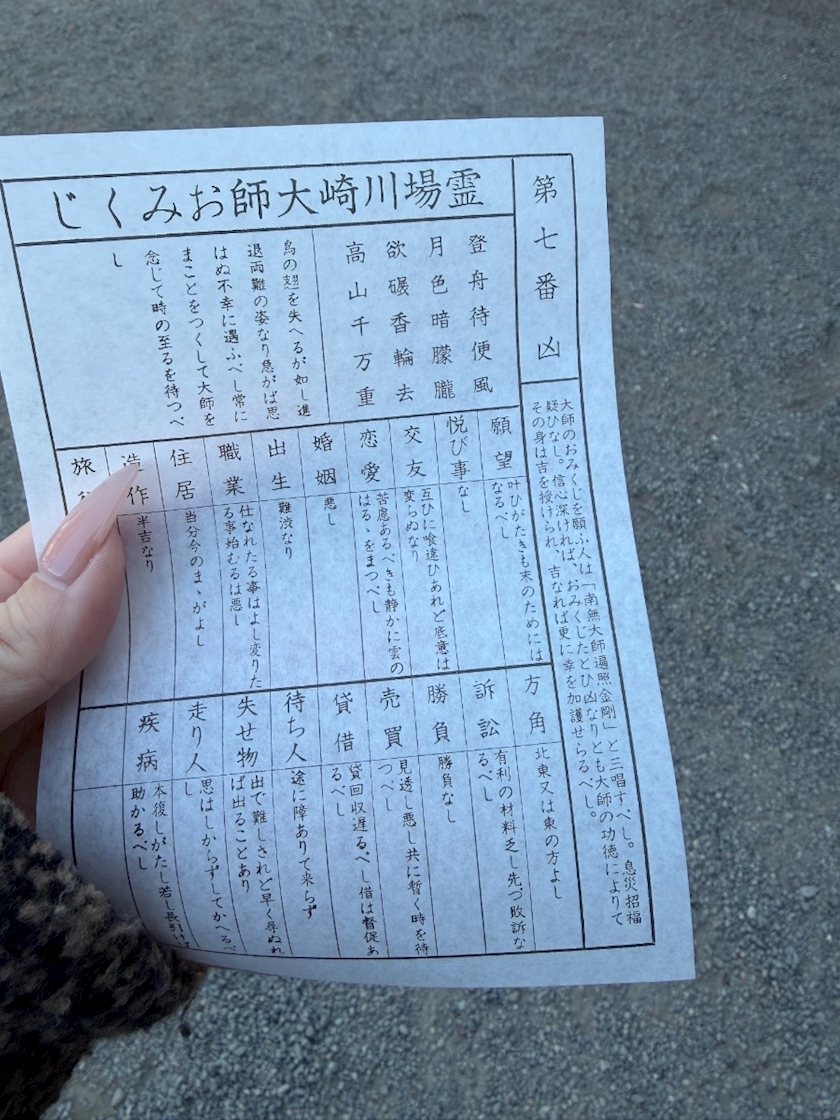 第七番 凶
大師のおみくじを願ふ人は「南無大師遍照金剛」と三唱すべし。息災招福
疑ひなし。信心深ければ、おみくじたとひ凶なりとも大師の功徳によりて
その身は吉を授けられ、吉なれば更に幸を加護せらるべし。
霊場川崎大師おみくじ
登舟待便風
月色暗朦朧
欲碾香輪去
高山千万重
鳥の翅を失へるが如し進
退両難の姿なり急がば思
はぬ不幸に遇ふべし常に
まことをつくして大師を
念じて時の至るを待つべ
し
願望
叶ひがたきも末のためには
なるべし
悦び事
なし
交友
互ひに喰違ひあれど底意は
変らぬなり
恋愛
苦慮あるべきも静かに雲の
はるゝをまつべし
婚姻
悪し
出生
難渋なり
職業
仕なれたる事はよし変りた
る事始むるは悪し
住居
当分今のまゝがよし
造作
半吉なり
旅
方角
北東又は東の方よし
訴訟
有利の材料乏し先づ敗訴な
るべし
勝負
勝負なし
売買
見透し悪し共に暫く時を待
つべし
貸借
貸回収遅るべし借は督促あ
るべし
待ち人
途に障ありて来らず
失せ物
出で難しされど早く尋ぬれ
ば出ることあり
走り人
思はしからずしてかへるべ
し
疾病
本復しがたし若し長引け
助かるべし